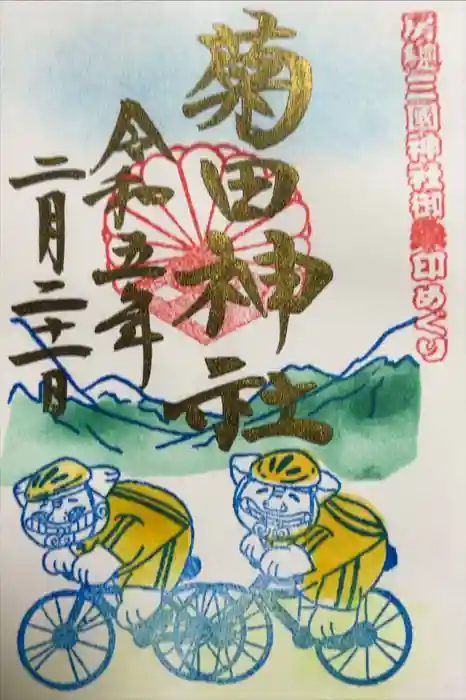 三國神社御朱印めぐり
菊田神社
令和五年
二月二十一日